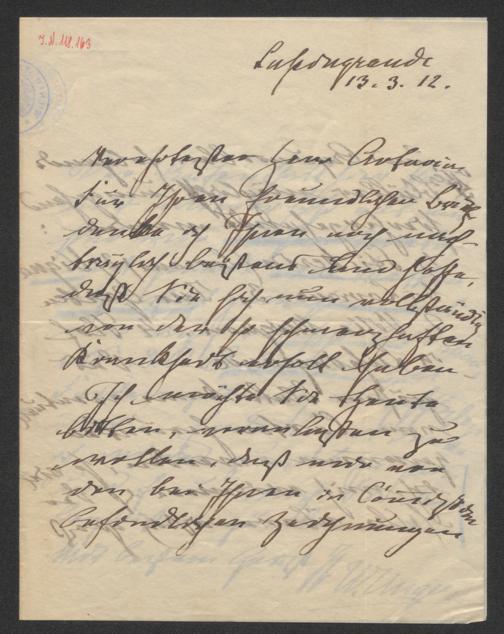 J.N. 118.163
Lussingrande
13. 3. 12.
Verehrtester Herr Artaria
Für Ihren freundlichen Brief
danke ich Ihnen noch nach-
träglich bestens und hoffe,
daß Sie sich nun vollständig
von der so schmerzhaften
Krankheit erholt haben.
Ich möchte Sie heute
bitten, veranlassen zu
wollen, daß mir von
den bei Ihnen in
befindlichen Zeichnungen